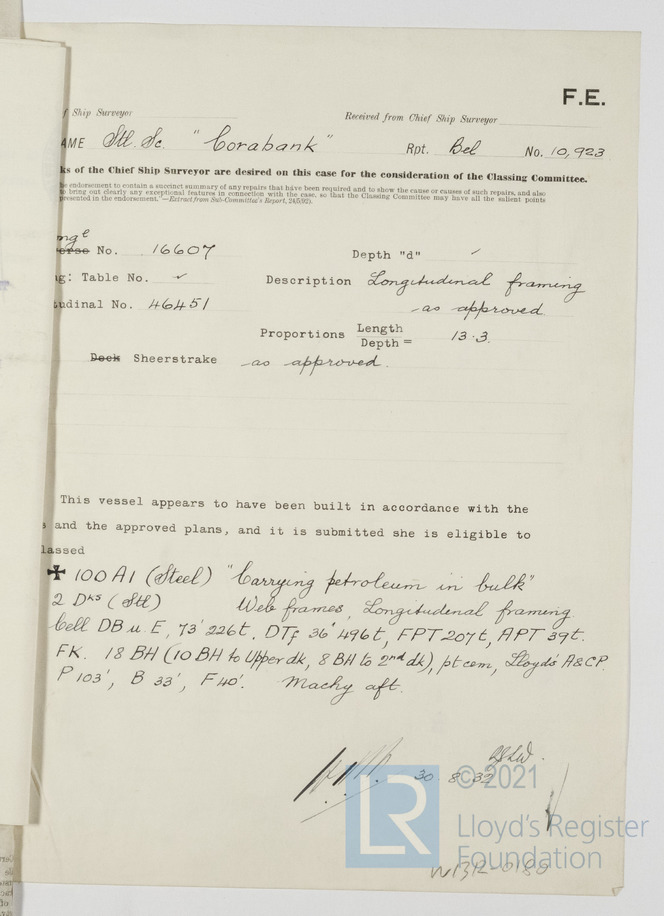 F.E.
f Ship Surveyor Received from Chief Ship Surveyor
AME Stl. Sc. "Corabank" Rpt. Bel No. 10,923
ks of the Chief Ship Surveyor are desired on this case for the consideration of the Classing Committee.
he endorsement to contain a succinct summary of any repairs that have been required and to show the cause or causes of such repairs, and also
to bring out clearly any exceptional features in connection with the case, so that the Classing Committee may have all the salient points
presented in the endorsement."—Extract from Sub-Committee's Report, 24/5/92).
nge
erse No. 16607 Depth "d" ✓
g: Table No. ✓ Description Longitudinal framing
tudinal No. 46451 - as approved
Proportions Length
Depth = 13.3.
Deck Sheerstrake - as approved.
This vessel appears to have been built in accordance with the
s and the approved plans, and it is submitted she is eligible to
lassed
✠ 100A1 (Steel) "Carrying petroleum in bulk"
2 Dks (Stl) Web frames, Longitudinal framing
Cell DB u. E, 73' 226t, DTf 36' 496t, FPT 207t, APT 39t.
FK. 18 BH (10 BH to Upper dk, 8 BH to 2nd dk), pt cem, Lloyd's A&CP.
P 103', B 33', F 40'. Machy aft.
30.8.32
© 2021
LR
Lloyd's Register
Foundation
W1312-0180